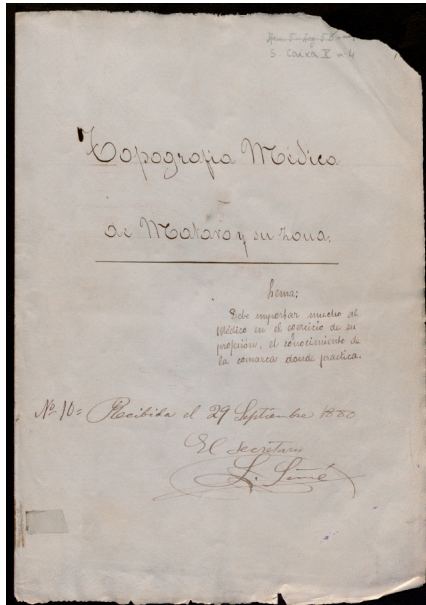 S. Caixa X n 4
Topografía Médica
de Mataró y su zona.
Lema:
Debe importar mucho al
Médico en el ejercicio de su
profesión, el conocimiento de
la comarca donde practica.
Nº 10= Recibida el 29 Septiembre 1880
El Secretario
L. Suñé